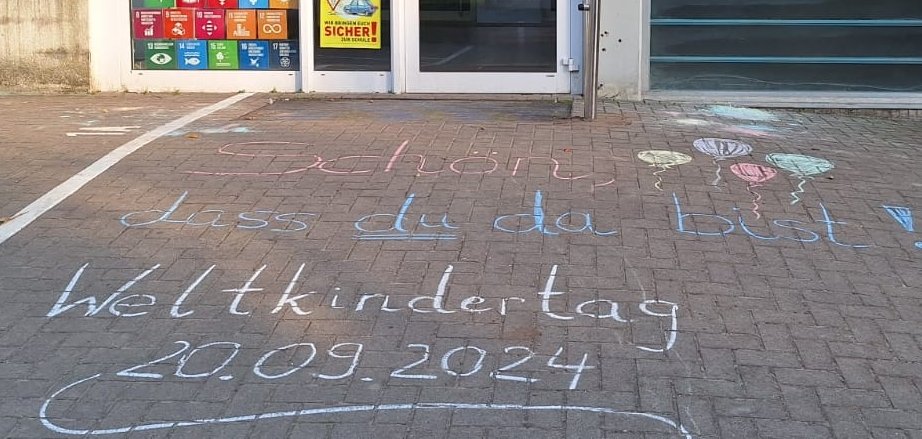 WIR BRINGEN EUCH
SICHER!
ZUR SCHULE!
13
14
15
16
17
Schön,
dass du da bist!
Weltkindertag
20.09.2024